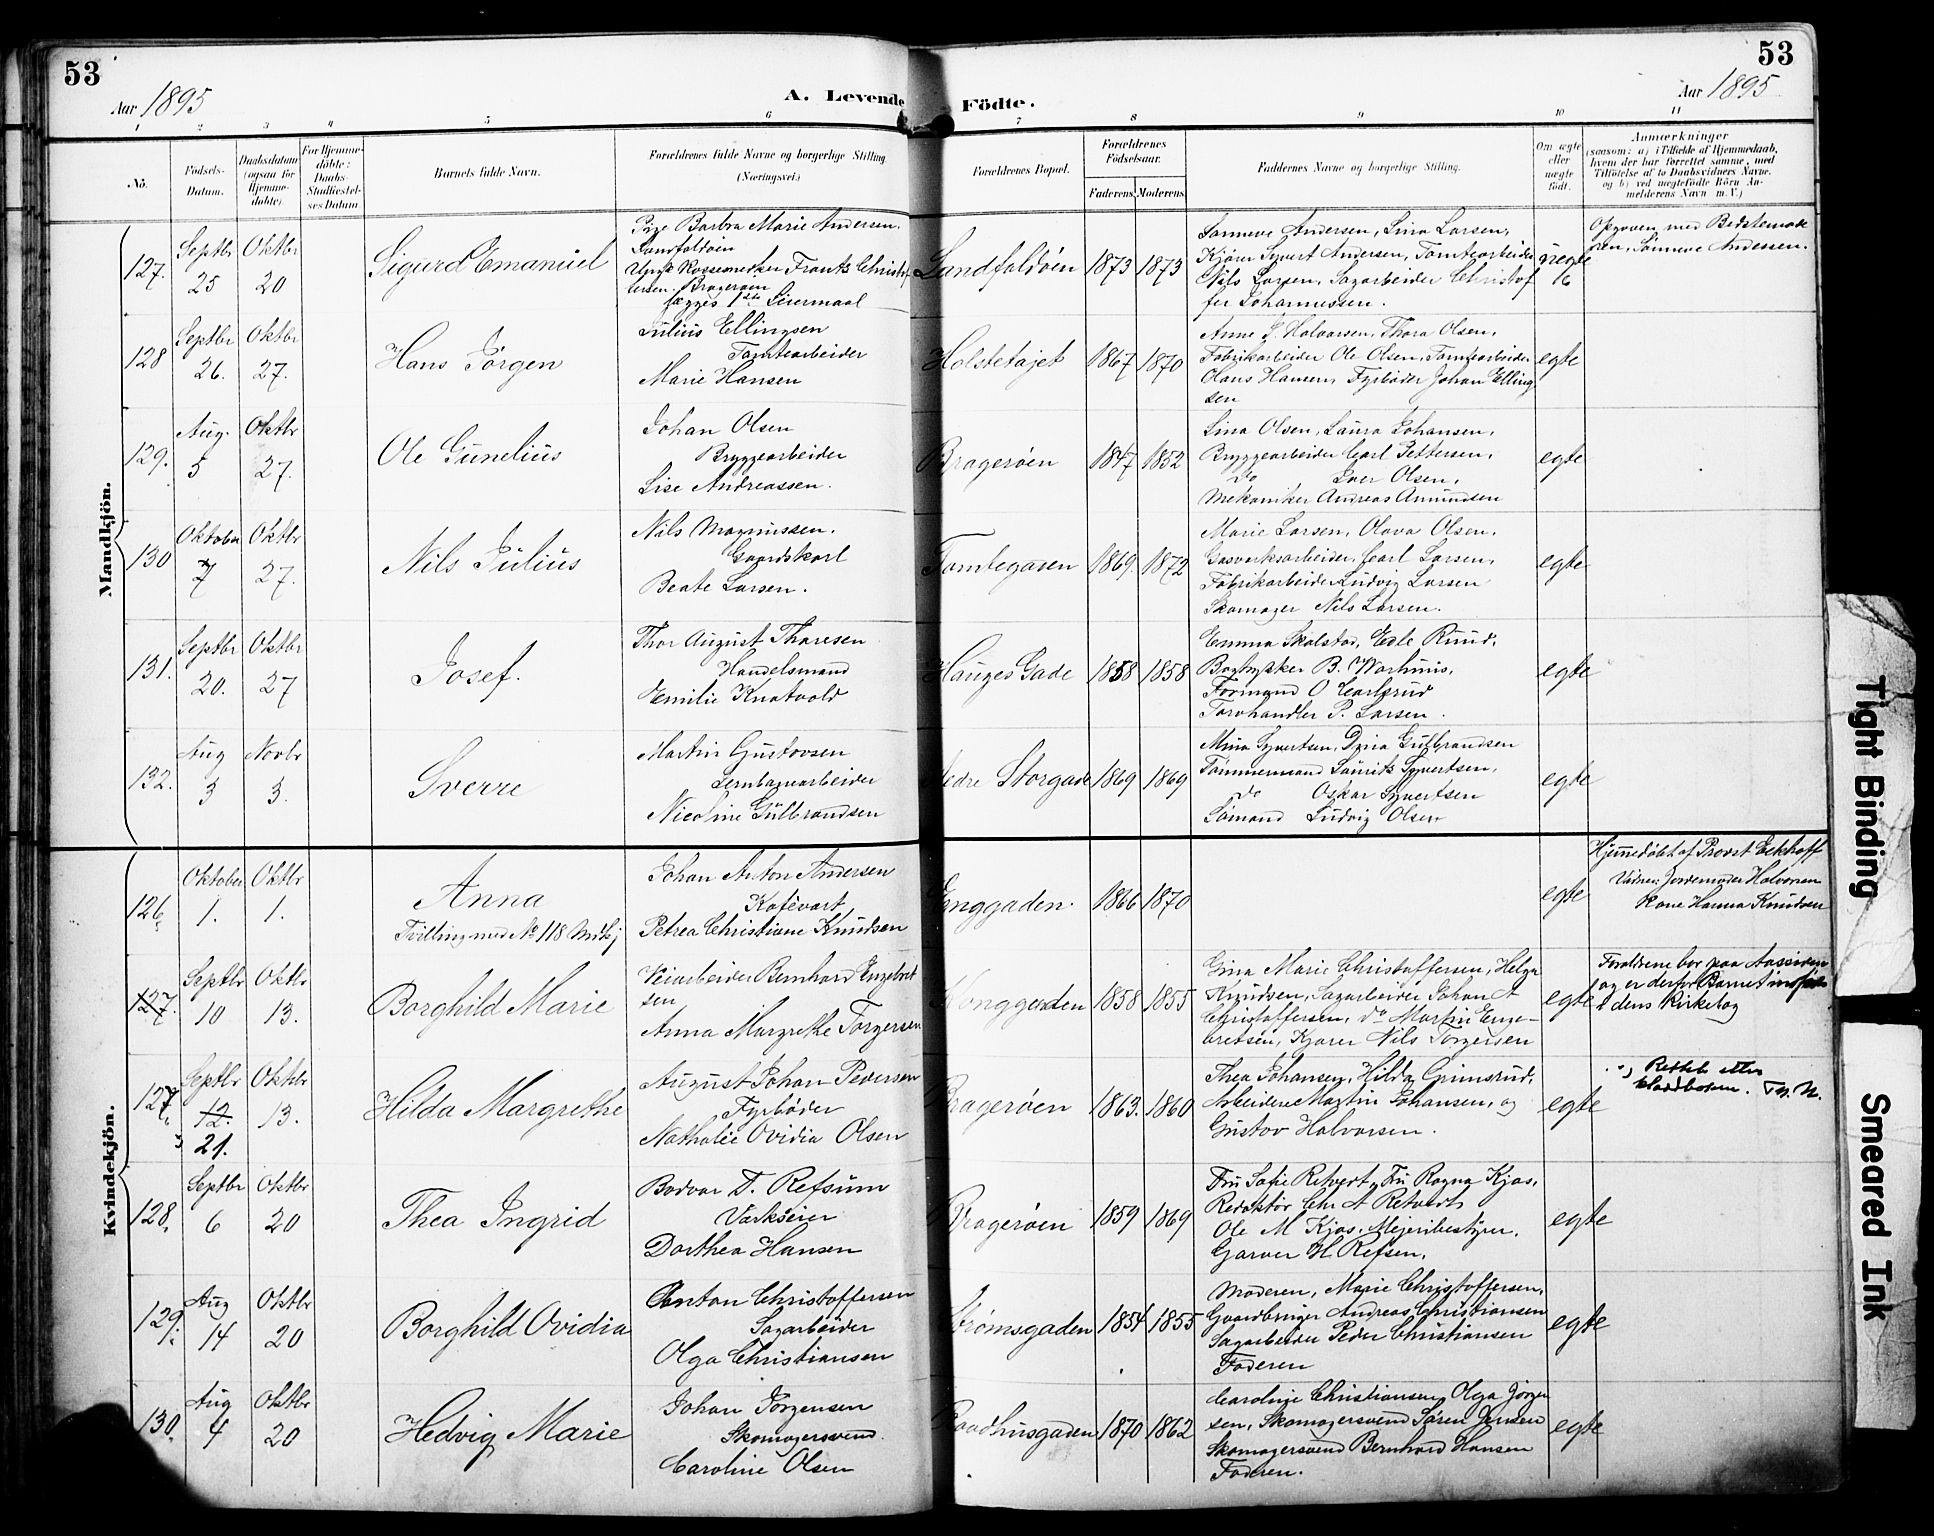 53
53
Aar 1895
A. Levende Födte.
Aar 1895
1 2 3 4 5 6 7 8 9 10 11
No.
Födsels-Datum.
Daabsdatum (ogsaa for Hjemme-döbte).
For Hjemme-döbte: Daabs-Stadfæstel-ses Datum.
Barnets fulde Navn.
Forældrenes fulde Navne og borgerlige Stilling.
(Næringsvei.)
Forældrenes Bopæl.
Forældrenes Födselsaar.
Faderens. Moderens.
Faddernes Navne og borgerlige Stilling.
Om ægte eller uægte født.
Anmærkninger
(saasom: a) i Tilfælde af Hjemmedaab,
hvem der har forrettet samme, med
Tilföielse af to Daabsvidners Navne,
og b) ved uægtefödte Börn An-
melderens Navn m. V.)
Mandkjön.
127. Septbr 25 Oktbr 20 Sigurd Emanuel
Pige Barbra Marie Andersen,
Landfaldöen
Frantz Christof
fersen. Brageröen
1ste Leiermaal
Landfaldöen 1873 1873
Sanneve Andersen, Lina Larsen,
Kjörer Syvert Andersen, Tomtearbeider
Nils Larsen, Sagarbeider Christof
fer Johannessen.
uegte
Opgiven med Bedstemode
ren, Sanneve Andersen.
128 Septbr 26. Oktbr 27. Hans Jörgen
Julius Ellingsen
Tomtearbeider
Marie Hansen
1867 1870
Anne L. Halvorsen, Thora Olsen,
Fabrikarbeider Ole Olsen, Tomtearbeider
Olaus Hansen, Fyrböder Johan Elling
sen
egte
129. Aug. 5 Oktbr 27. Ole Gunelius
Johan Olsen
Bryggearbeider
Lise Andreassen.
Brageröen 1847 1852
Lina Olsen, Laura Johansen,
Bryggearbeider Carl Pettersen,
do Iver Olsen,
Mekaniker Andreas Amundsen
egte
130 Oktober 7 Oktbr 27. Nils Julius
Nils Magnussen.
Gaardskarl
Beate Larsen.
Tomtegaden 1869. 1872
Marie Larsen, Olava Olsen,
Gasverksarbeider Carl Larsen,
Fabrikarbeider Ludvig Larsen
Skomager Nils Larsen.
egte
131. Septbr 20. Oktbr 27 Josef.
Thor August Thoresen
Handelsmand
Emilie Knatvold
Hauges Gade 1858 1858
Emma Skolstad, Edle Ruud,
Bogtrykker B. Warhuus,
Formand O Carlsrud
Tarvhandler P. Larsen.
egte
132. Aug 3 Novbr 3. Sverre
Martin Gustavsen
Jernbanearbeider
Nicoline Gulbrandsen
Nedre Storgade 1869 1869
Mina Syvertsen, Dina Gulbrandsen
Tömmermand Laurits Syvertsen,
do Oskar Syvertsen
Sömand Ludvig Olsen
egte
Kvindekjön.
126. Oktober 1. Oktbr 1. Anna
Tvilling med No 118 Mdkj
Johan Anton Andersen
Kafévært
Petrea Christiane Knudsen
Enggaden. 1866 1870
egte
Hjemmedöbt af Provst Eckhoff
Vidner: Jordemoder Halvorsen
Kone Hanna Knudsen
127. Septbr 10 Oktbr 13. Borghild Marie
Veiarbeider Bernhard Engebret
sen
Anna Margrethe Torgersen
Konggaden 1858 1855
Gina Marie Christoffersen, Helga
Knudsen, Sagarbeider Johan A
Christoffersen, do Martin Enge-
bretsen, Kjörer Nils Torgersen
egte
Foraldrene bor paa Aassiden
og er derfor Barnet indfört
i dens Kirkebog
127. Septbr 12. 21. Oktbr 13. Hilda Margrethe
August Johan Pedersen
Fyrböder
Nathalie Ovidia Olsen
Brageröen 1863. 1860
Thea Johansen, Hilda Grimsrud,
Arbeiderne Martin Johansen, og
Gustav Halvorsen.
egte
Rettet efter
Kladdboken.
128. Septbr 6 Oktbr 20 Thea Ingrid
Bodvar T. Refsum
Værkseier
Dorthea Hansen
Brageröen 1859 1869
Fru Sofie Retvedt, Fru Ragna Kjos,
Redaktör Chr A Retvedt,
Ole M Kjos, Mejeribestyrer,
Garver H. Refsen,
egte
129. Aug 14 Oktbr 20 Borghild Ovidia
Anton Christoffersen
Sagarbeider
Olga Christiansen
Strömsgaden 1854 1855
Moderen, Marie Christoffersen,
Gaardbruger Andreas Christiansen
Sagarbeider Peder Christiansen
Faderen
egte
130. Aug 4 Oktbr 20 Hedvig Marie
Johan Jörgensen
Skomagersvend.
Caroline Olsen
Raadhusgaden 1870 1862
Caroline Christiansen, Olga Jörgen
sen, Skomagersvend Sören Jensen
Skomagersvend Bernhard Hansen
Faderen.
egte
Tight Binding
Smeared Ink